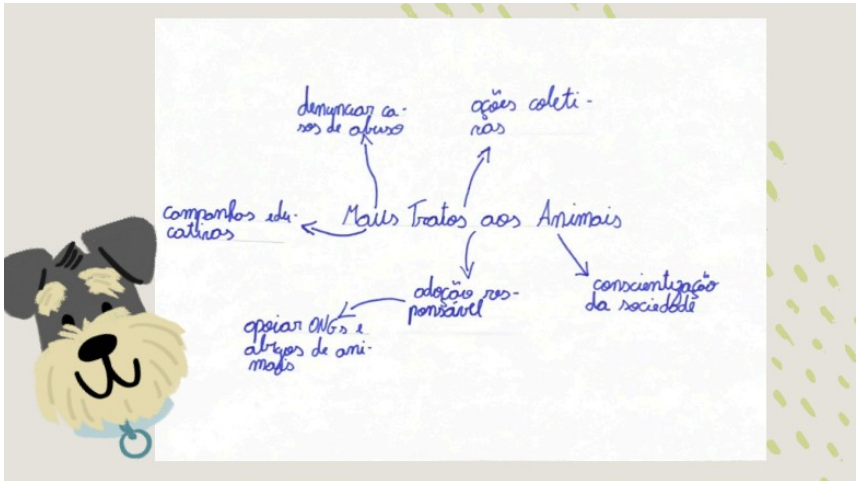 denunciar ca-
sos de abuso
ações coleti-
vas
campanhas edu-
cativas
Maus Tratos aos Animais
adoção res-
ponsável
conscientização
da sociedade
apoiar ONGs e
abrigos de ani-
mais